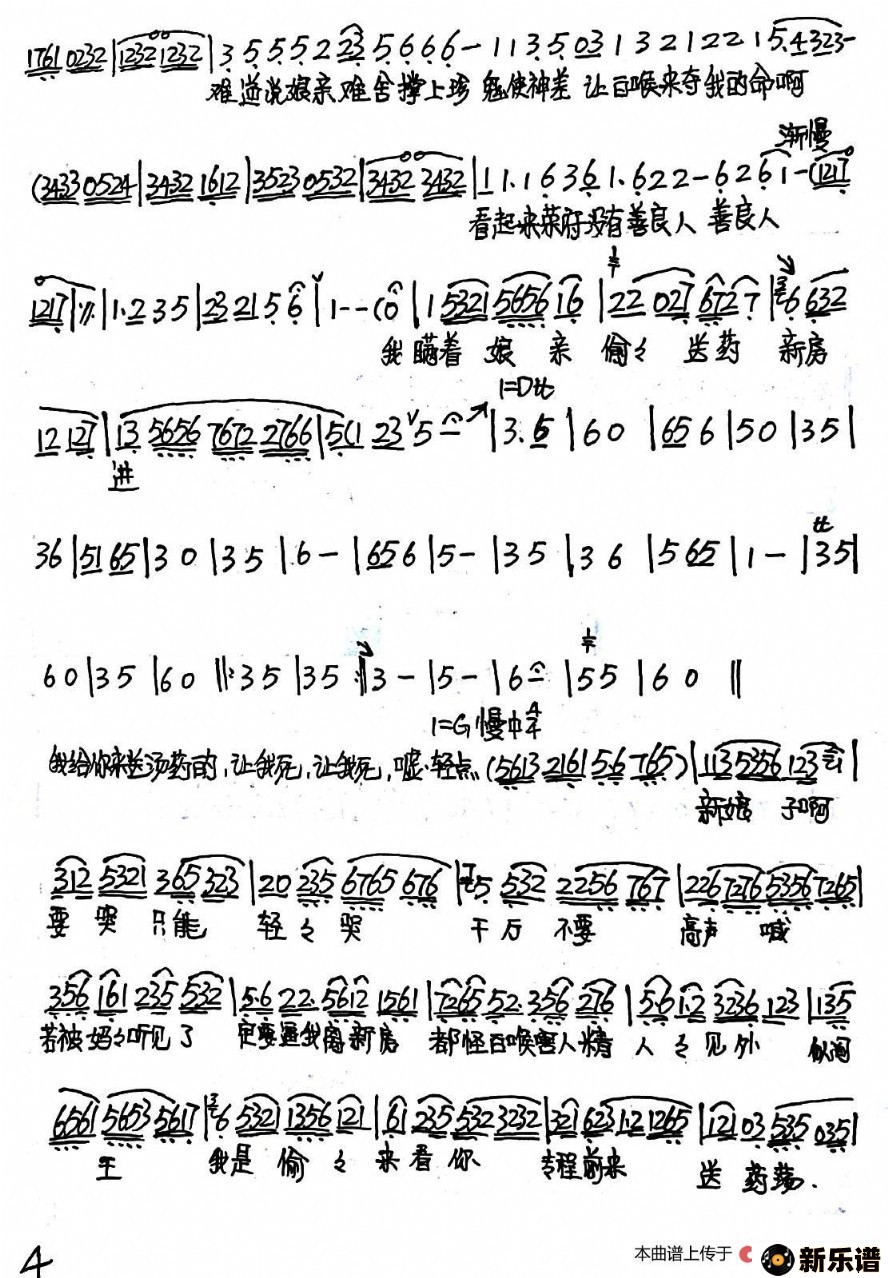 1761 0232 | 1232 1232 | 3 5 5 5 2 23 5 6 6 6 – 1 1 3 5 03 1 3 2 1 2 2 1 5.4323–
难道说娘亲难舍撑上珍 鬼使神差 让白喉来夺我的命啊
渐慢
(3433 0524 | 3432 1612 | 3523 0532 | 3432 3432 | 1 1.1 6 3 6 1.6 2 2 – 6 2 6 1 – (1217
看起来菜府没有善良人 善良人
1217 | | 1.2 3 5 | 23 21 5 6 | 1 – – (0 | 1 5321 5656 16 | 22 027 672 7 | 6 632
我瞒着 娘 亲 偷々 送药 新房
1=D
12 127 | 13 5656 7672 2766 | 5(1 23 5 – | 3.5 | 6 0 | 65 6 | 5 0 | 3 5 |
进
36 | 51 65 | 3 0 | 3 5 | 6 – | 65 6 | 5 – | 3 5 | 3 6 | 5 65 | 1 – | 3 5 |
6 0 | 3 5 | 6 0 ‖: 3 5 | 3 5 :‖ 3 – | 5 – | 6 – | 5 5 | 6 0 ‖
1=G 慢中
我给你来送汤药的,让我死,让我死,嘘、轻点 (5613 2161 5.6 765) | 113 5356 123 1 |
新娘 子啊
312 5321 365 323 | 20 235 6765 676 | 5 532 2256 767 | 226 7276 5356 7265 |
要 哭 只能 轻々哭 千万 不要 高声 喊
356 161 235 532 | 5.6 22. 5612 1561 | 7265 52. 356 276 | 5.6 1.2 3236 123 | 135
若被妈々听见了 定要逼我离新房 都怪白喉害人精 人々见外 似阎
6561 5653 5617 | 6 5321 1356 121 | 61 235 532 3232 | 321 623 1.2 1265 | 121 03 535 035 |
王 我是 偷々 来看你 专程前来 送 药荡.
4
本曲谱上传于 新乐谱